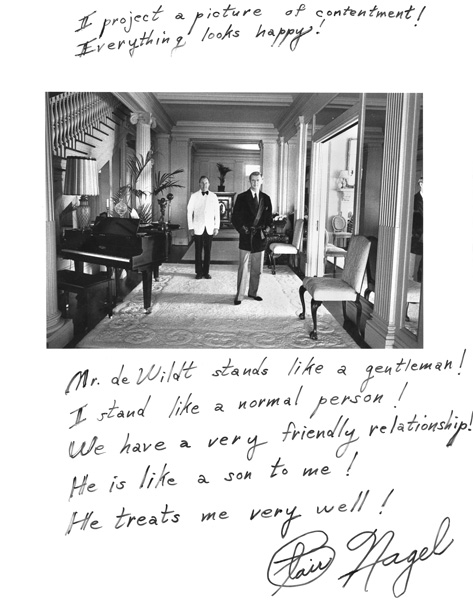 I project a picture of contentment!
Everything looks happy!
Mr. de Wildt stands like a gentleman!
I stand like a normal person!
We have a very friendly relationship!
He is like a son to me!
He treats me very well!
Clair Nagel